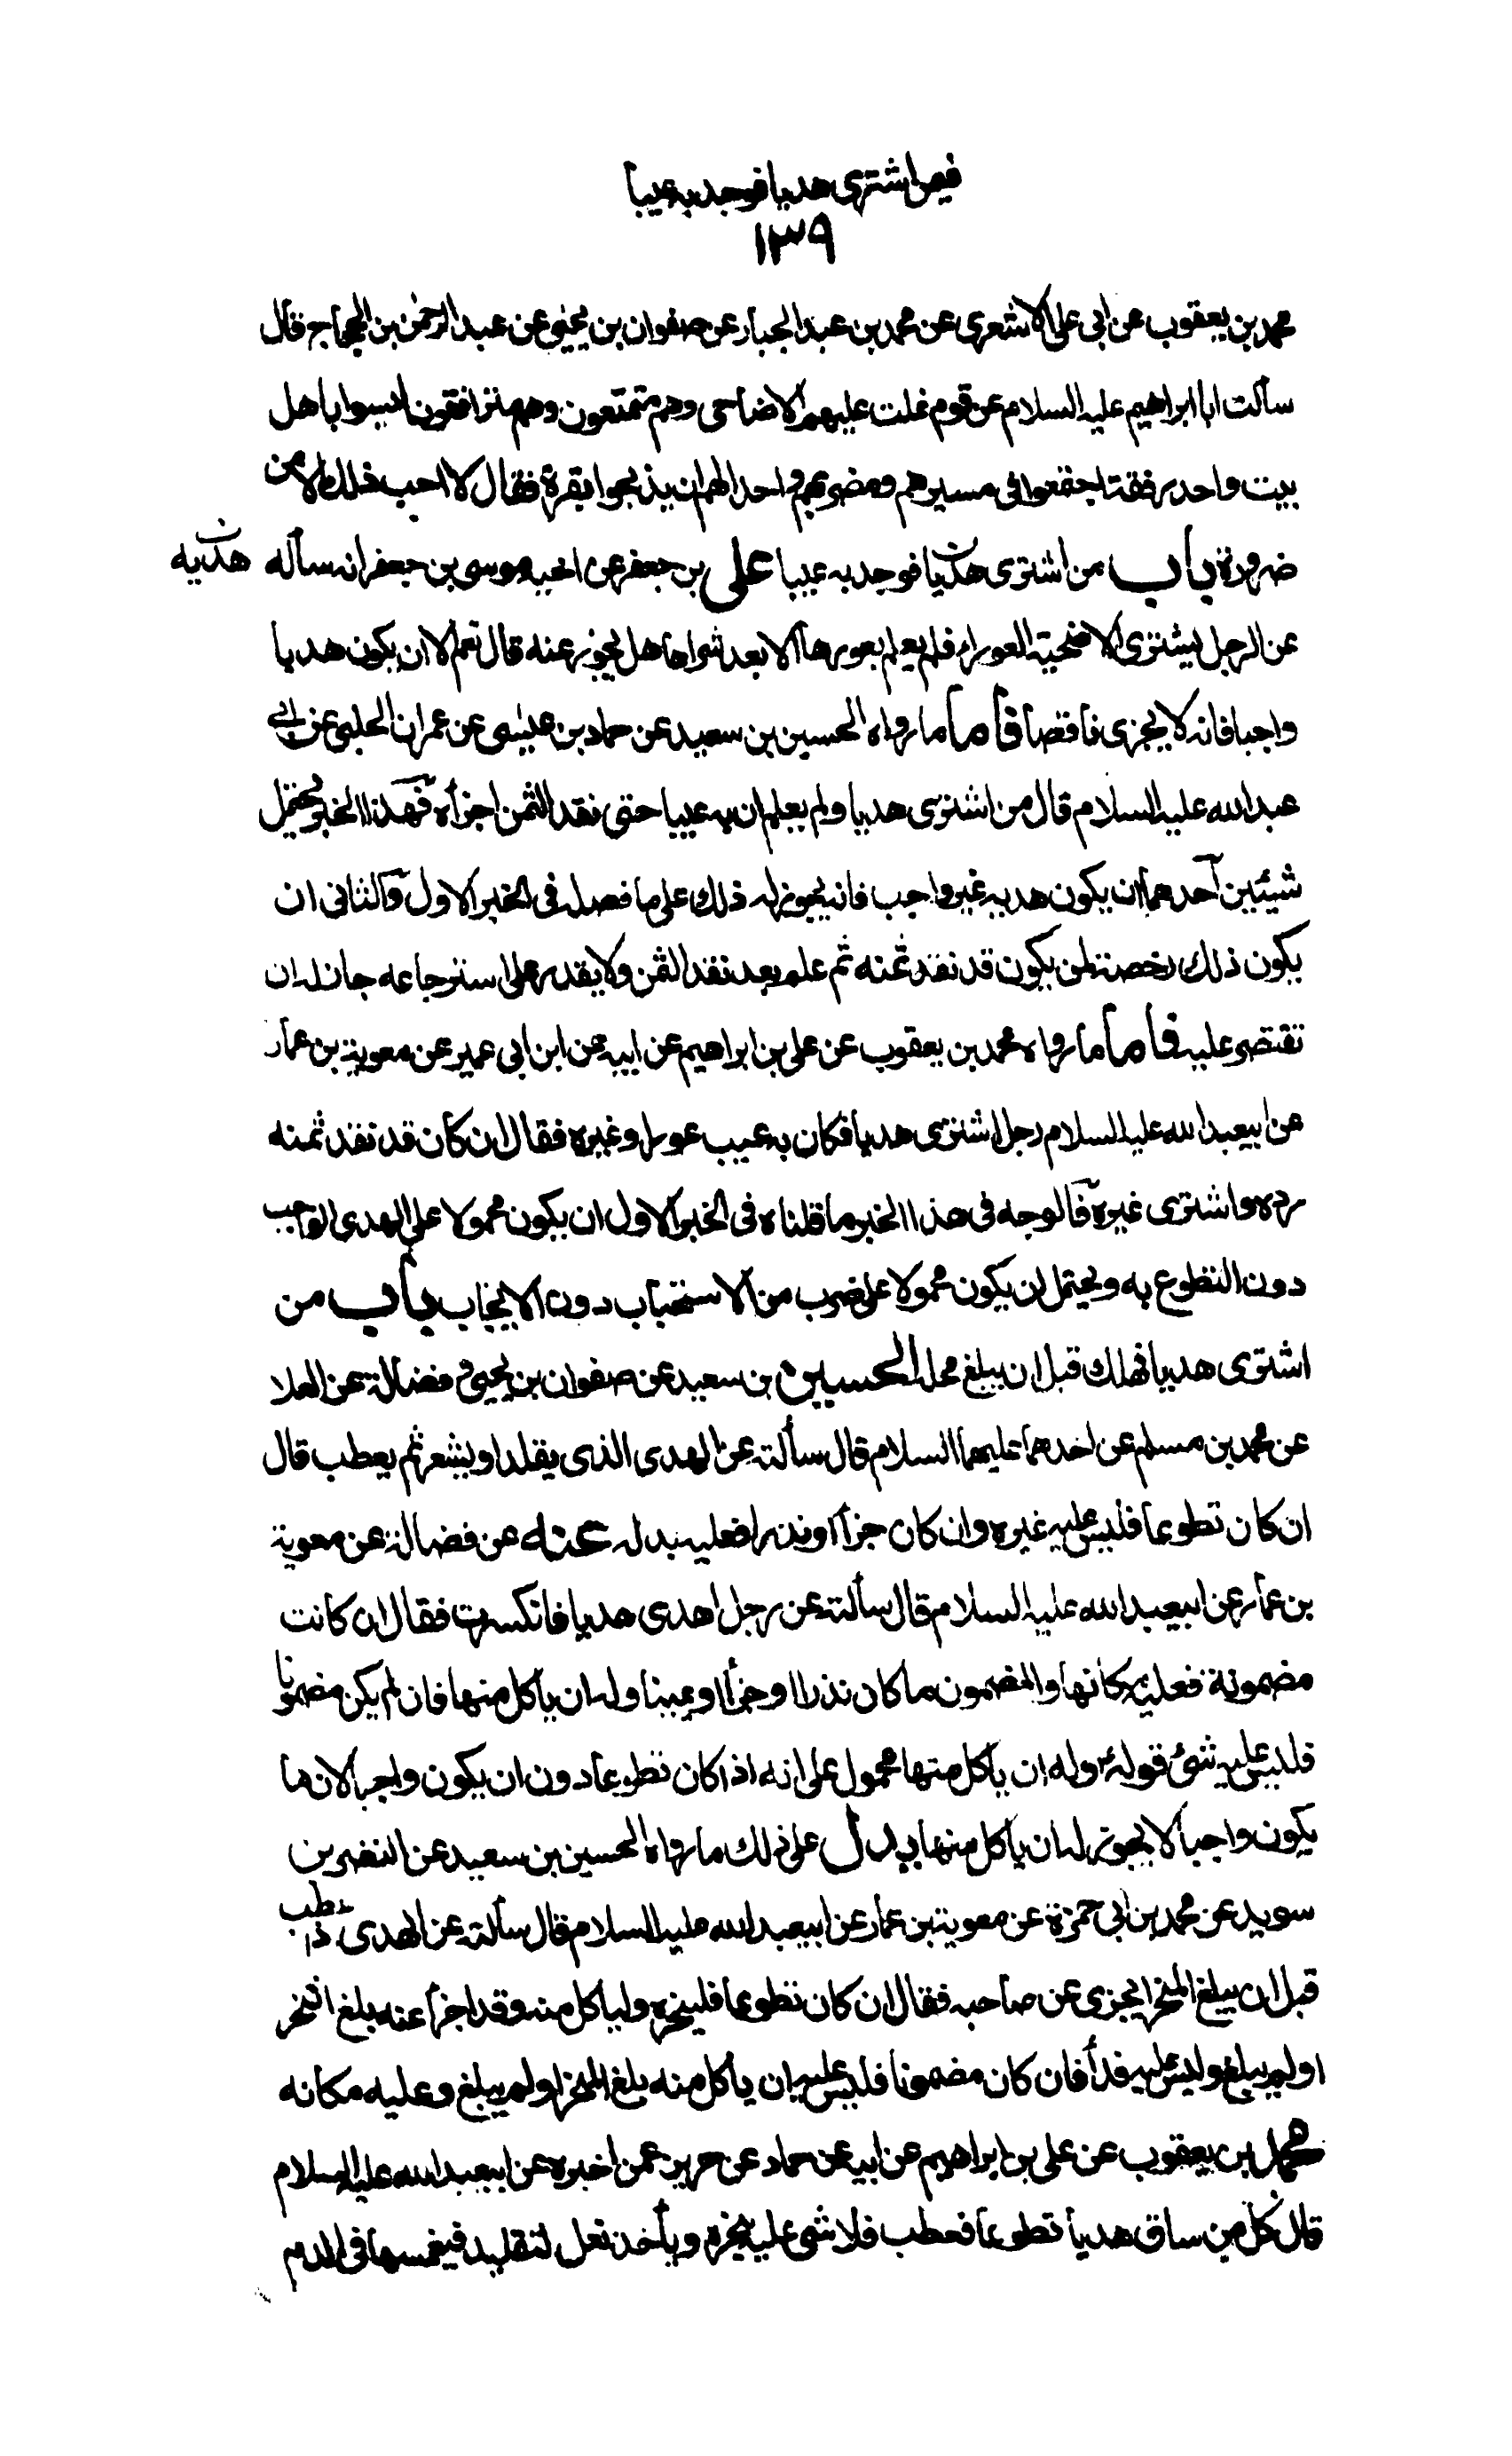 فيمن اشترى هديا فوجد به عيبا
١٣٩
محمد بن يعقوب عن ابى على الاشعرى عن محمد بن عبد الجبار عن صفوان بن يحيى عن عبد الرحمن بن الحجاج قال
سألت ابا ابراهيم عليه السلام عن قوم غلت عليهم الاضاحى وهم متمتعون وهم مترافقون ليسوا باهل
بيت واحد رفقة اجتمعوا فى مسيرهم ومضربهم واحد الهم ان يذبحوا بقرة فقال لا احب ذلك الا من
ضرورة باب من اشترى هديا فوجد به عيبا على بن جعفر عن اخيه موسى بن جعفر انه سأله
هديه ن
عن الرجل يشترى الاضحية العوراء فلم يعلم بعورها الا بعد شراها هل يجوز عنه قال نعم الا ان يكون هديا
واجبا فانه لا يجزى ناقصا فأما ما رواه الحسين بن سعيد عن حماد بن عيسى عن عمران الحلبى عن ابى
عبد الله عليه السلام قال من اشترى هديا ولم يعلم ان به عيبا حتى نقد الثمن اجزأه فهذا الخبر يحتمل
شيئين احدهما ان يكون هديه غير واجب فانه يجوز له ذلك على ما فصله فى الخبر الاول والثانى ان
يكون ذلك رخصة لمن يكون قد نقد ثمنه ثم علم بعد نقد الثمن ولا يقدر على استرجاعه جاز له ان
تقتصر عليه فأما ما رواه محمد بن يعقوب عن على بن ابراهيم عن ابيه عن ابن ابى عمير عن معوية بن عمار
عن ابيعبد الله عليه السلام رجل اشترى هديا فكان به عيب عور او غيره فقال ان كان قد نقد ثمنه
رده واشترى غيره فالوجه فى هذا الخبر ما قلناه فى الخبر الاول ان يكون محمولا على الهدى الواجب
دون التطوع به ويحتمل ان يكون محمولا على ضرب من الاستحباب دون الايجاب باب من
اشترى هديا فهلك قبل ان يبلغ محله الحسين بن سعيد عن صفوان بن يحيى و فضالة عن العلا
عن محمد بن مسلم عن احدهما عليهما السلام قال سألته عن الهدى الذى يقلد او يشعر ثم يعطب قال
ان كان تطوعا فليس عليه غيره وان كان جزآا اونذرا فعليه بدله عنه عن فضالة عن معوية
بن عمار عن ابيعبد الله عليه السلام قال سألته عن رجل اهدى هديا فانكسرت فقال ان كانت
مضمونة فعليه مكانها والمضمون ما كان نذرا او جزأا او يمينا وله ان يأكل منها فان لم يكن مضمونا
فليس عليه شئ قوله ع وله ان يأكل منها محمول على انه اذا كان تطوعا دون ان يكون واجبا لان ما
يكون واجبا لا يجوز له ان يأكل منها يدل على ذلك ما رواه الحسين بن سعيد عن النضر بن
سويد عن محمد بن ابى حمزة عن معوية بن عمار عن ابيعبد الله عليه السلام قال سألته عن الهدى اذا عطب
قبل ان يبلغ المنحر ايجزى عن صاحبه فقال ان كان تطوعا فلينحره وليأكل منه وقد اجزأ عنه بلغ المنحر
او لم يبلغ وليس عليه فدأ فان كان مضمونا فليس عليه ان يأكل منه بلغ المنحر او لم يبلغ وعليه مكانه
محمد بن يعقوب عن على بن ابراهيم عن ابيه عن حماد عن حريز عمن اخبره عن ابيعبد الله عليه السلام
قال كل من ساق هديا تطوعا فعطب فلا شئ عليه ينحره ويأخذ نعل التقليد فيغمسها فى الدم